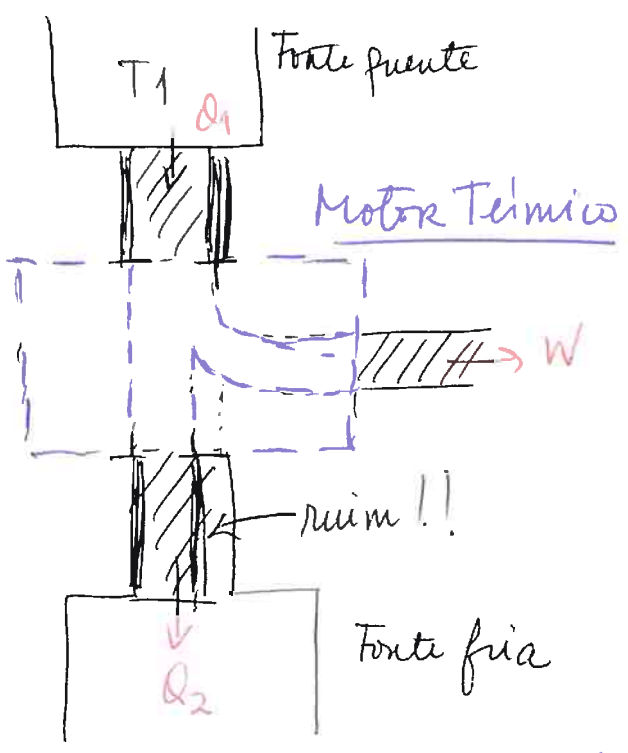 Fonte quente
T1
Q1
Motor Térmico
W
ruim!!
Fonte fria
Q2